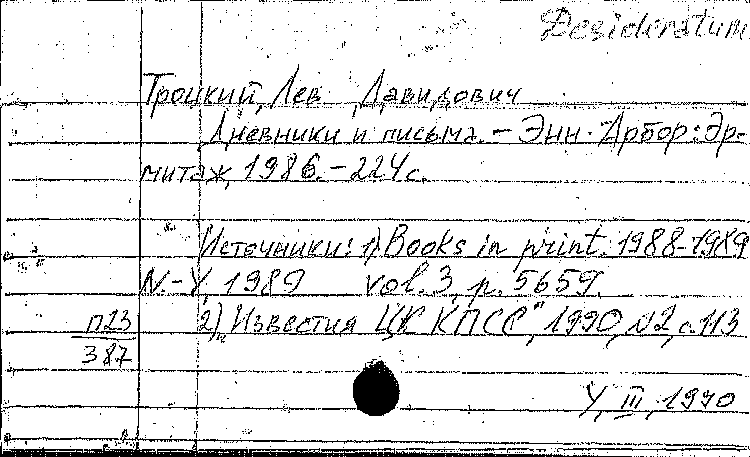 Desideratum
Троцкий, Лев Давидович
Дневники и письма. – Энн-Арбор: Эр-
митаж, 1986. – 224 с.
Источники: 1) Books in print. 1988-1989
N.-Y, 1989 vol. 3, p. 5659.
2) „Известия ЦК КПСС", 1990, N2, с. 113
П23
387
У, III, 1990